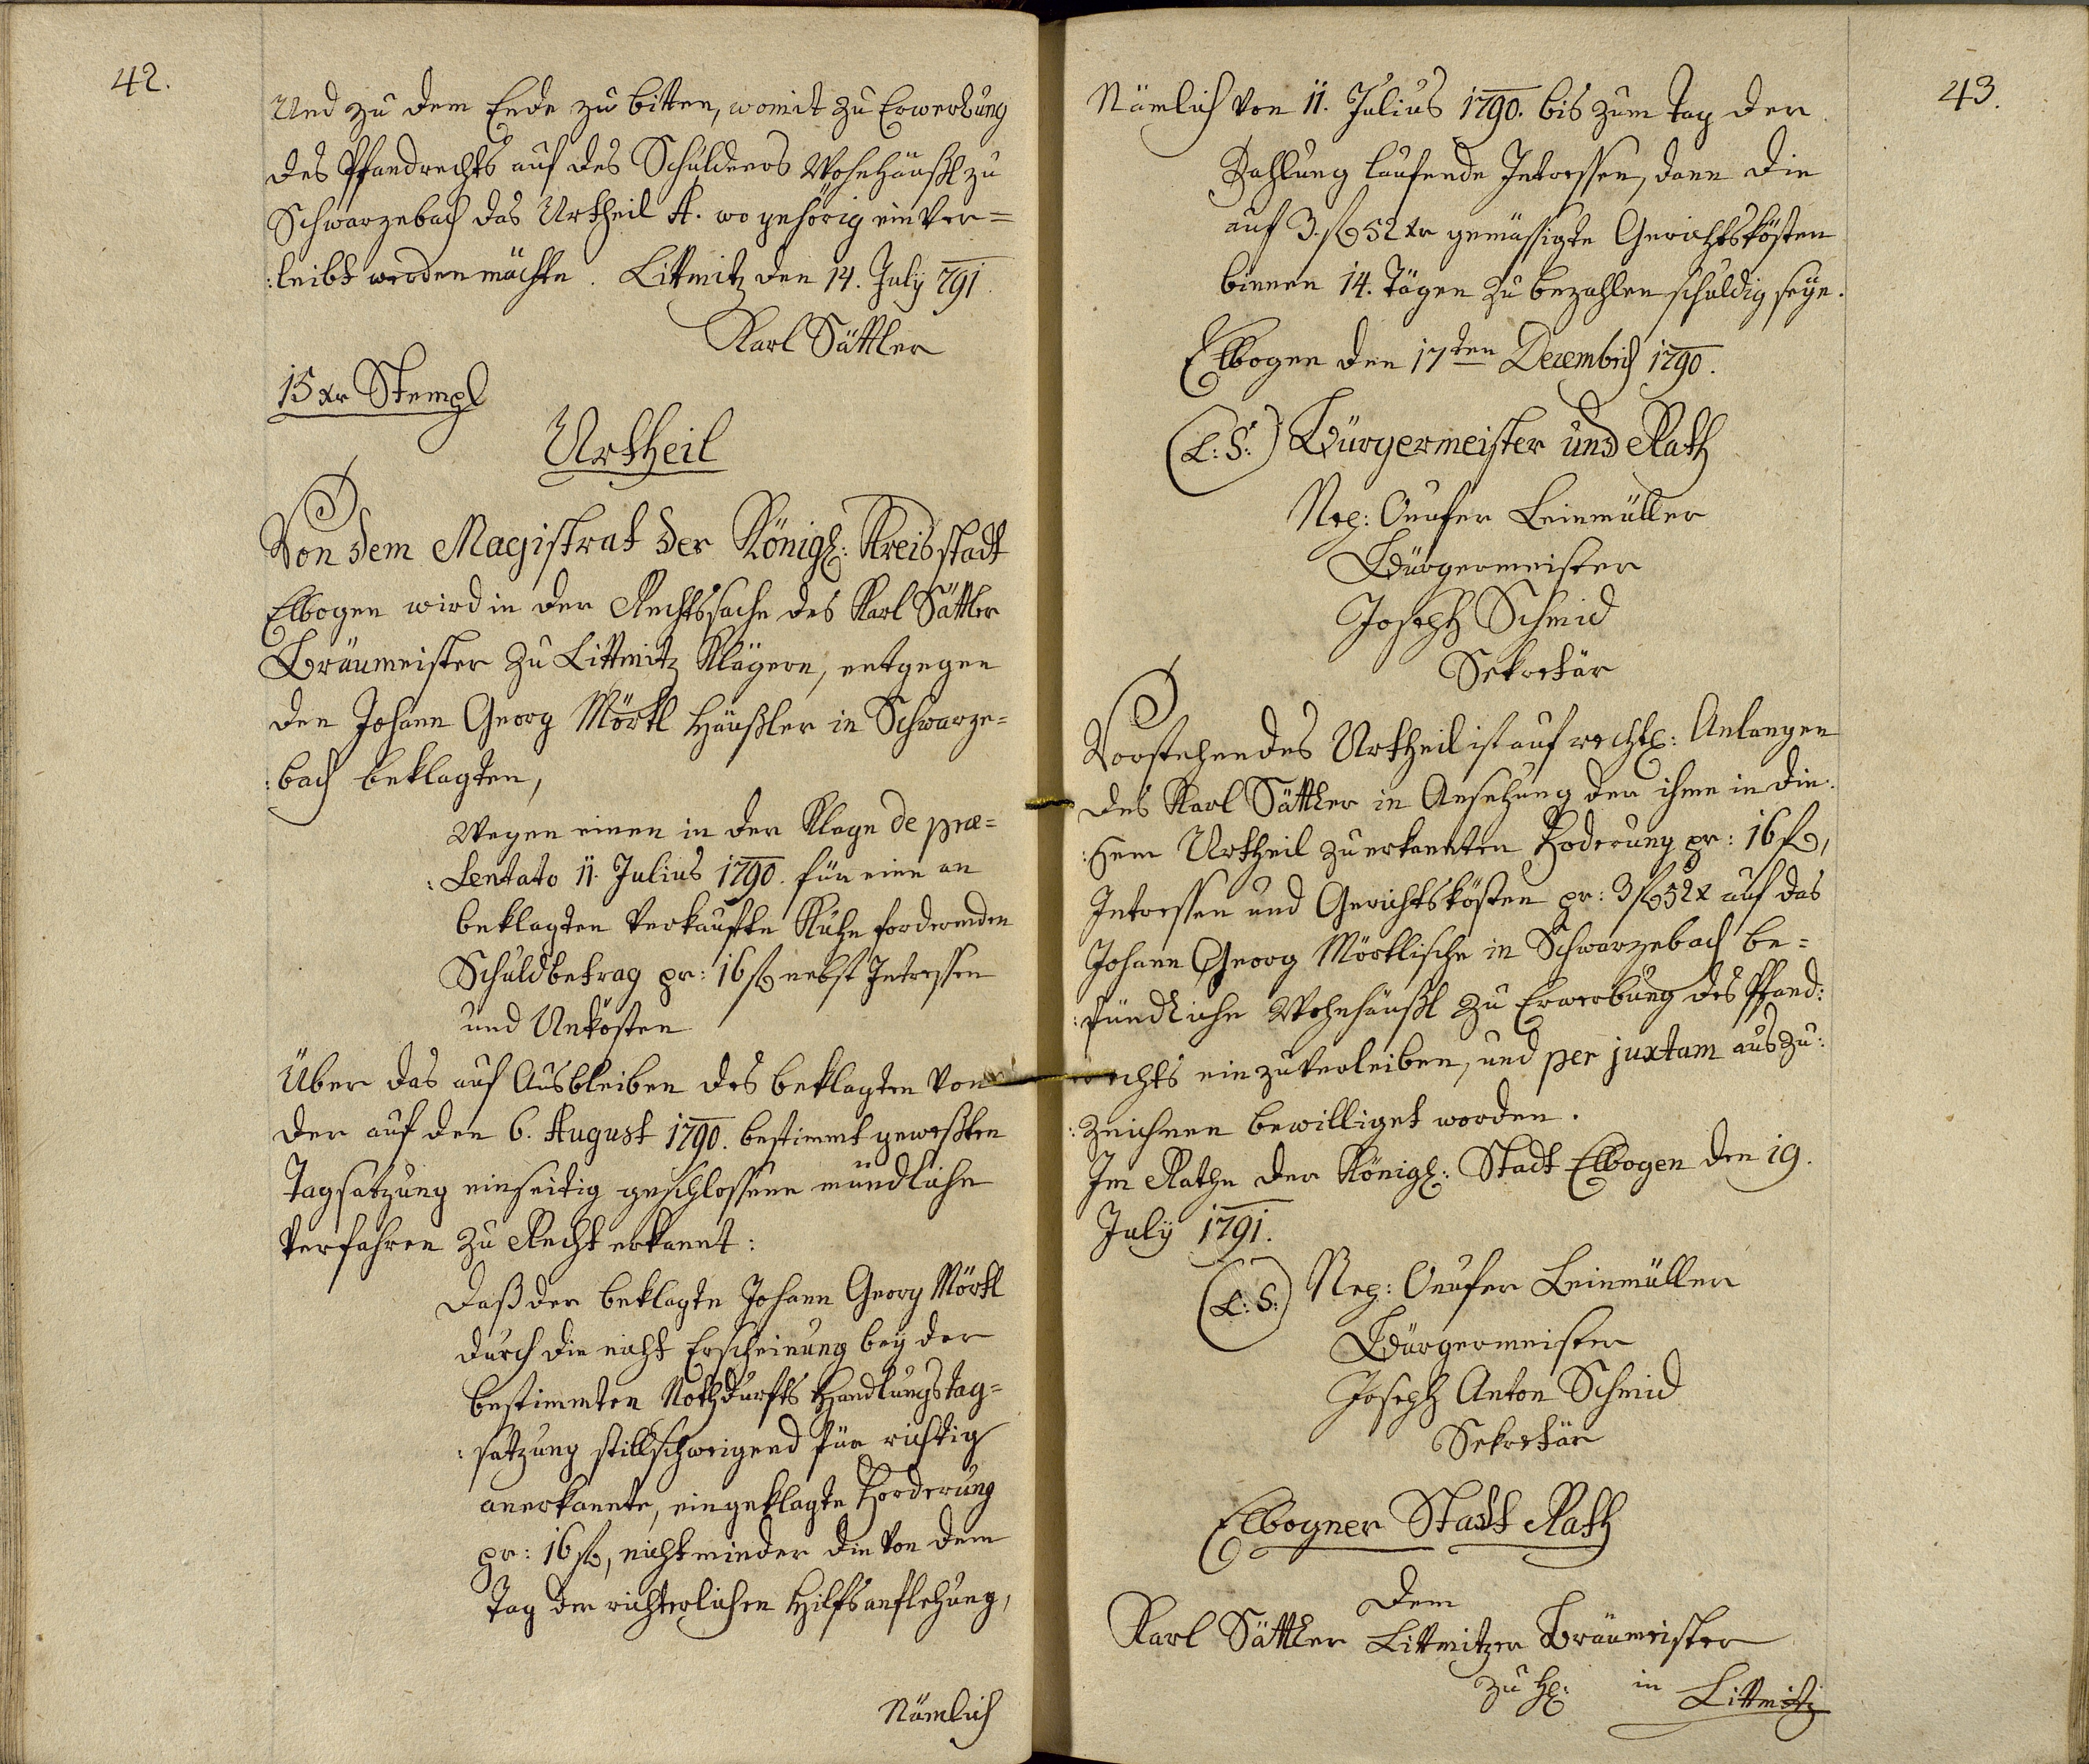 42.
Und zu dem Ende zu bitten, womit zu Erwerbung
des Pfandrechts auf des Schuldners Wohnhäußl zu
Schwarzebach das Urtheil A. wo gehörig einver=
:leibt werden möchte. Littmitz den 14. July 791.
Karl Sättler
15 xr Stempl
Urtheil
Von dem Magistrat der Königl: Kreisstadt
Elbogen wird in der Rechtssache des Karl Sättler
Bräumeister zu Littmitz Klägern, entgegen
den Johann Georg Mörtl Häußler in Schwarze=
:bach beklagten,
Wegen einen in der Klage de præ=
:sentato 11. Julius 1790. für eine an
beklagten verkaufte Kuhe forderenden
Schuldbetrag pr: 16 fl nebst Intressen
und Unkösten
Über das auf Ausbleiben des beklagten von
der auf den 6. August 1790. bestimmt geweßten
Tagsatzung einseitig geschlossene mündliche
Verfahren zu Recht erkannt:
Daß der beklagte Johann Georg Mörtl
durch die nicht Erscheinung bey der
bestimmten Nothdurfts Handlungstag=
:satzung stillschweigend für richtig
anerkannte, eingeklagte Forderung
pr: 16 fl, nicht minder die von dem
Tag der richterlichen Hilfsanflehung,
Nämlich
43.
Nämlich von 11. Julius 1790. bis zum Tag der
Zahlung laufende Intressen, dann die
auf 3. fl 52 xr gemässigte Gerichtskösten
binnen 14. Tägen zu bezahlen schuldig seye.
Elbogen den 17ten Decembris 1790.
(L: S:) Bürgermeister und Rath
Nep: Onufer Leinmüller
Bürgermeister
Joseph Schmid
Sekretär
Vorstehendes Urtheil ist auf rechtl: Anlangen
des Karl Sättler in Ansehung der ihme in die:
:sem Urtheil zuerkannten Foderung pr: 16 fl,
Intressen und Gerichtskösten pr: 3 fl 52 x auf das
Johann Georg Mörtlische in Schwarzebach be=
:fündliche Wohnhäußl zu Erwerbung des Pfand:
rechts einzuverleiben, und per juxtam auszu:
:zeichnen bewilliget worden.
Im Rathe der Königl: Stadt Elbogen den 19.
July 1791.
(L: S:) Nep: Onufer Leinmüller
Bürgermeister
Joseph Anton Schmid
Sekretär
Elbogner Stadt Rath
Dem
Karl Sättler Littmitzer Bräumeister
zu in Littmitz